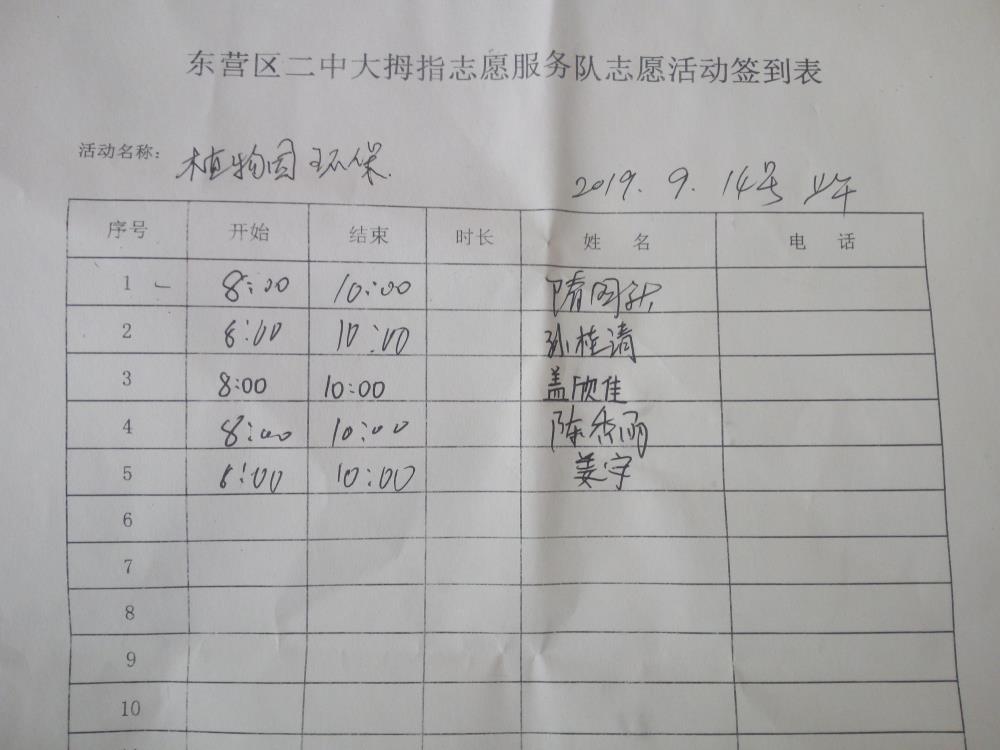 东营区二中大拇指志愿服务队志愿活动签到表
活动名称: 植物园环保
2019.9.14号 上午
序号 开始 结束 时长 姓名 电话
1 8:00 10:00 隋图
2 8:00 10:00 孙桂清
3 8:00 10:00 盖欣佳
4 8:00 10:00 陈秀丽
5 8:00 10:00 姜宇
6
7
8
9
10